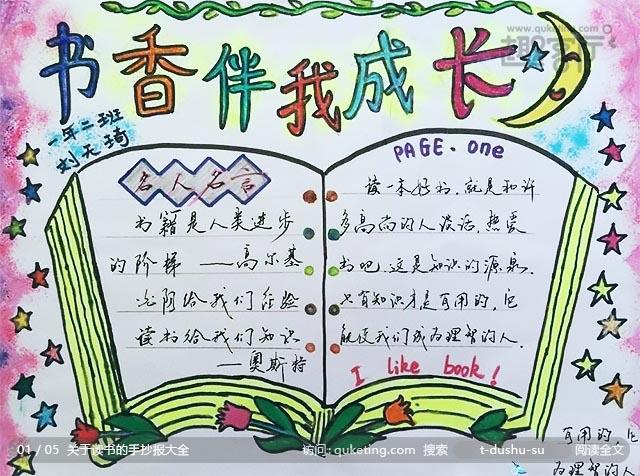 www.quketing.com
趣客厅
书香伴我成长
一年二班
刘天琦
名人名言
书籍是人类进步
的阶梯 ——高尔基
光阴给我们经验
读书给我们知识
——奥斯特
PAGE. one
读一本好书,就是和许
多高尚的人谈话,热爱
书吧,这是知识的源泉.
只有知识才是有用的,它
能使我们成为理智的人.
I like book!
有用的,它
为理智的人
01 / 05 关于读书的手抄报大全 访问: quketing.com 搜索 t-dushu-su 阅读全文